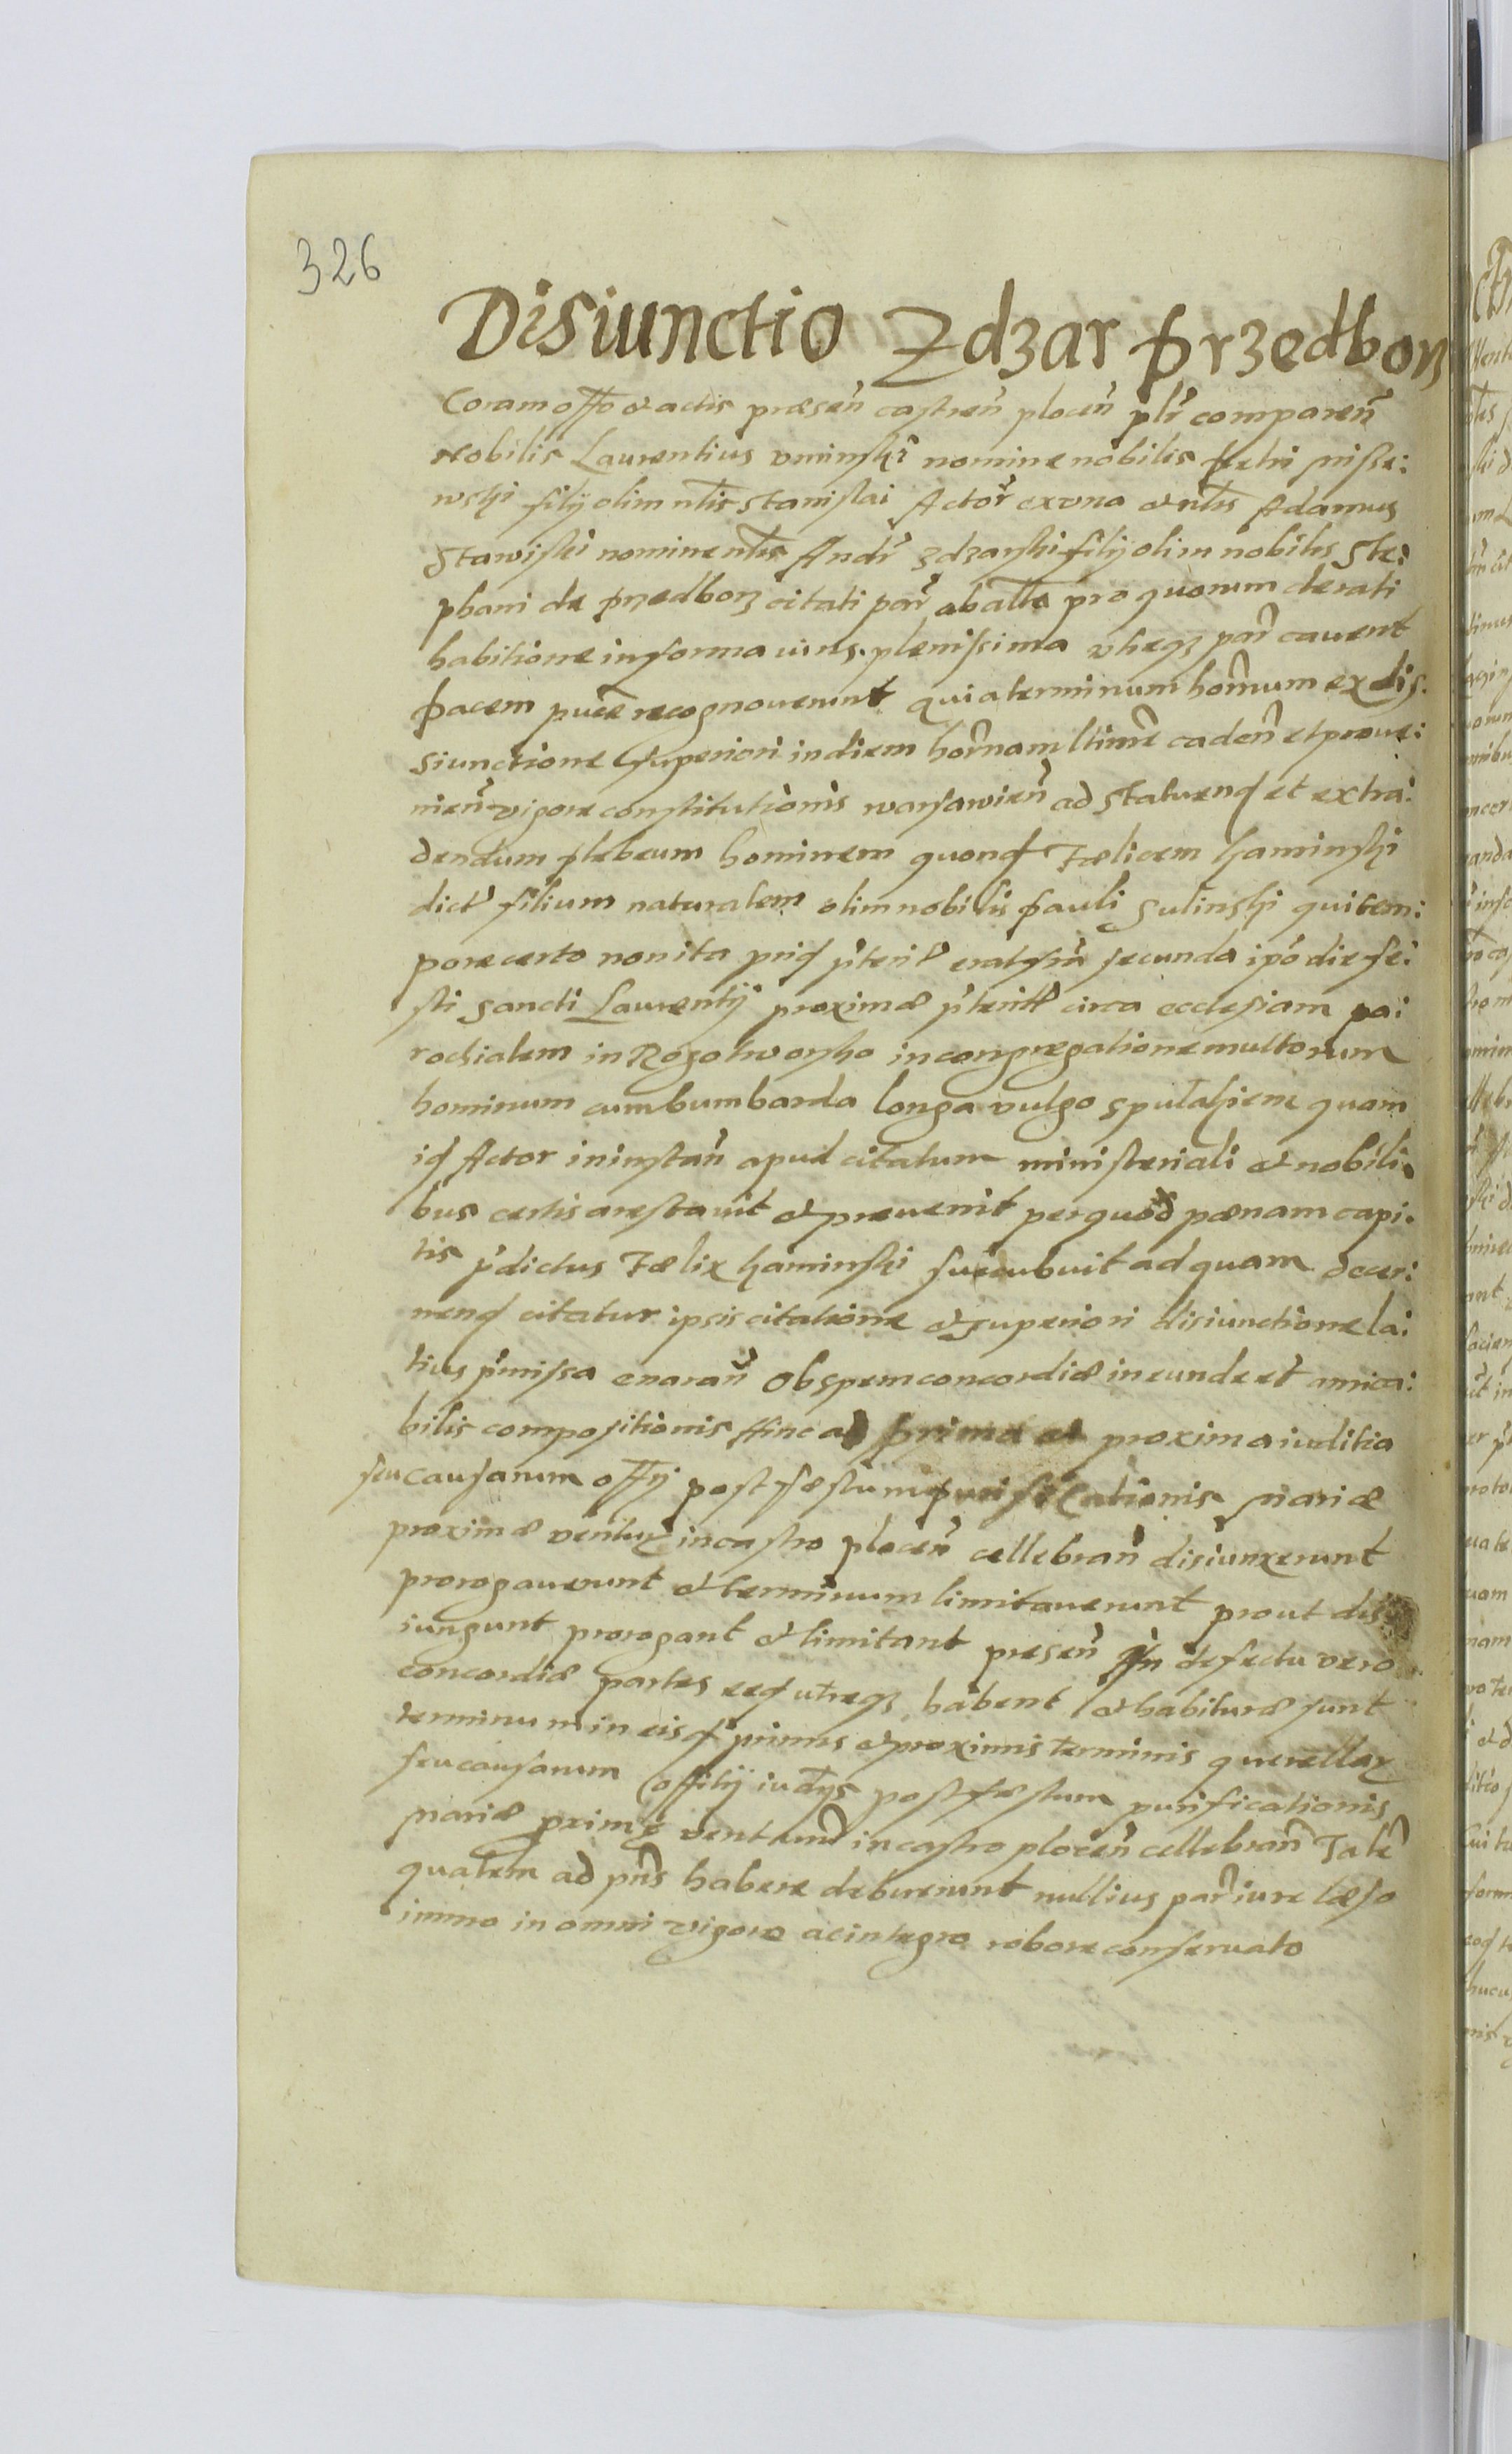 326
Disiunctio Zdzar Przedborz
Coram offo et actis præsen̄ castren̄ plocen̄ plr̄ comparen̄
Nobilis Laurentius uminski nomine nobilis Petri
wski filij olim nlis Stanislai Actor̄ ex una et nlis Adamus
Stawiski nomine nlis Andr̄ Zdzarski filij olim nobilis Ste:
phani de Przedborz citati par̄ ab alta pro quorum derati
habitione in forma iuris plenissima utrǫz par̄ cavent
Pacem puce recognoverunt quia terminum horn̄um ex dis:
siunctione superiori in diem horn̄am ltime caden̄ et prove:
nien̄ vigore constitutionis warsawien̄ ad statuend et extra:
dendum plebeum hominem quond Fælicem Kaminski
dict filium naturalem olim nobilis Pauli Sulinski qui tem:
pore certo non ita prid pterit erat frā secunda ipo die fe:
sti sancti Laurentij proximæ pterit circa ecclesiam pa:
rochialem in Rogotworsko in congregatione multorum
hominum cum bumbarda longa vulgo spulahiem quam
id Actor in instan̄ apud citatum ministeriali et nobili
bus certis arestavit et prevenit per quod pœnam capi:
tis pdictus Fælix Kaminski succubuit ad quam decer:
nend citatur ipsis citatione et superiori disiunctione la:
tius pmissa enaran̄ Ob spem concordiæ ineunde et amica:
bilis compositionis Hinc ad prima et proxima iuditia
seu causarum offij post festum purificationis Mariæ
proximæ ventur in castro plocen̄ cellebran̄ disiunxerunt
prorogaverunt et terminum limitaverunt prout dis
iungunt prorogant et limitant presen̄ In defectu vero
concordiæ partes eed utræqz habent et habituræ sunt
terminum in eisd primis et proximis terminis querellarz
seu causarum offitij iudys post festum purificationis
Mariæ prime ventur in castro plocen̄ cellebran̄ Tale
qualem ad pns habere debuerunt nullius par̄ iure læso
immo in omni vigore ac integro robore conservato